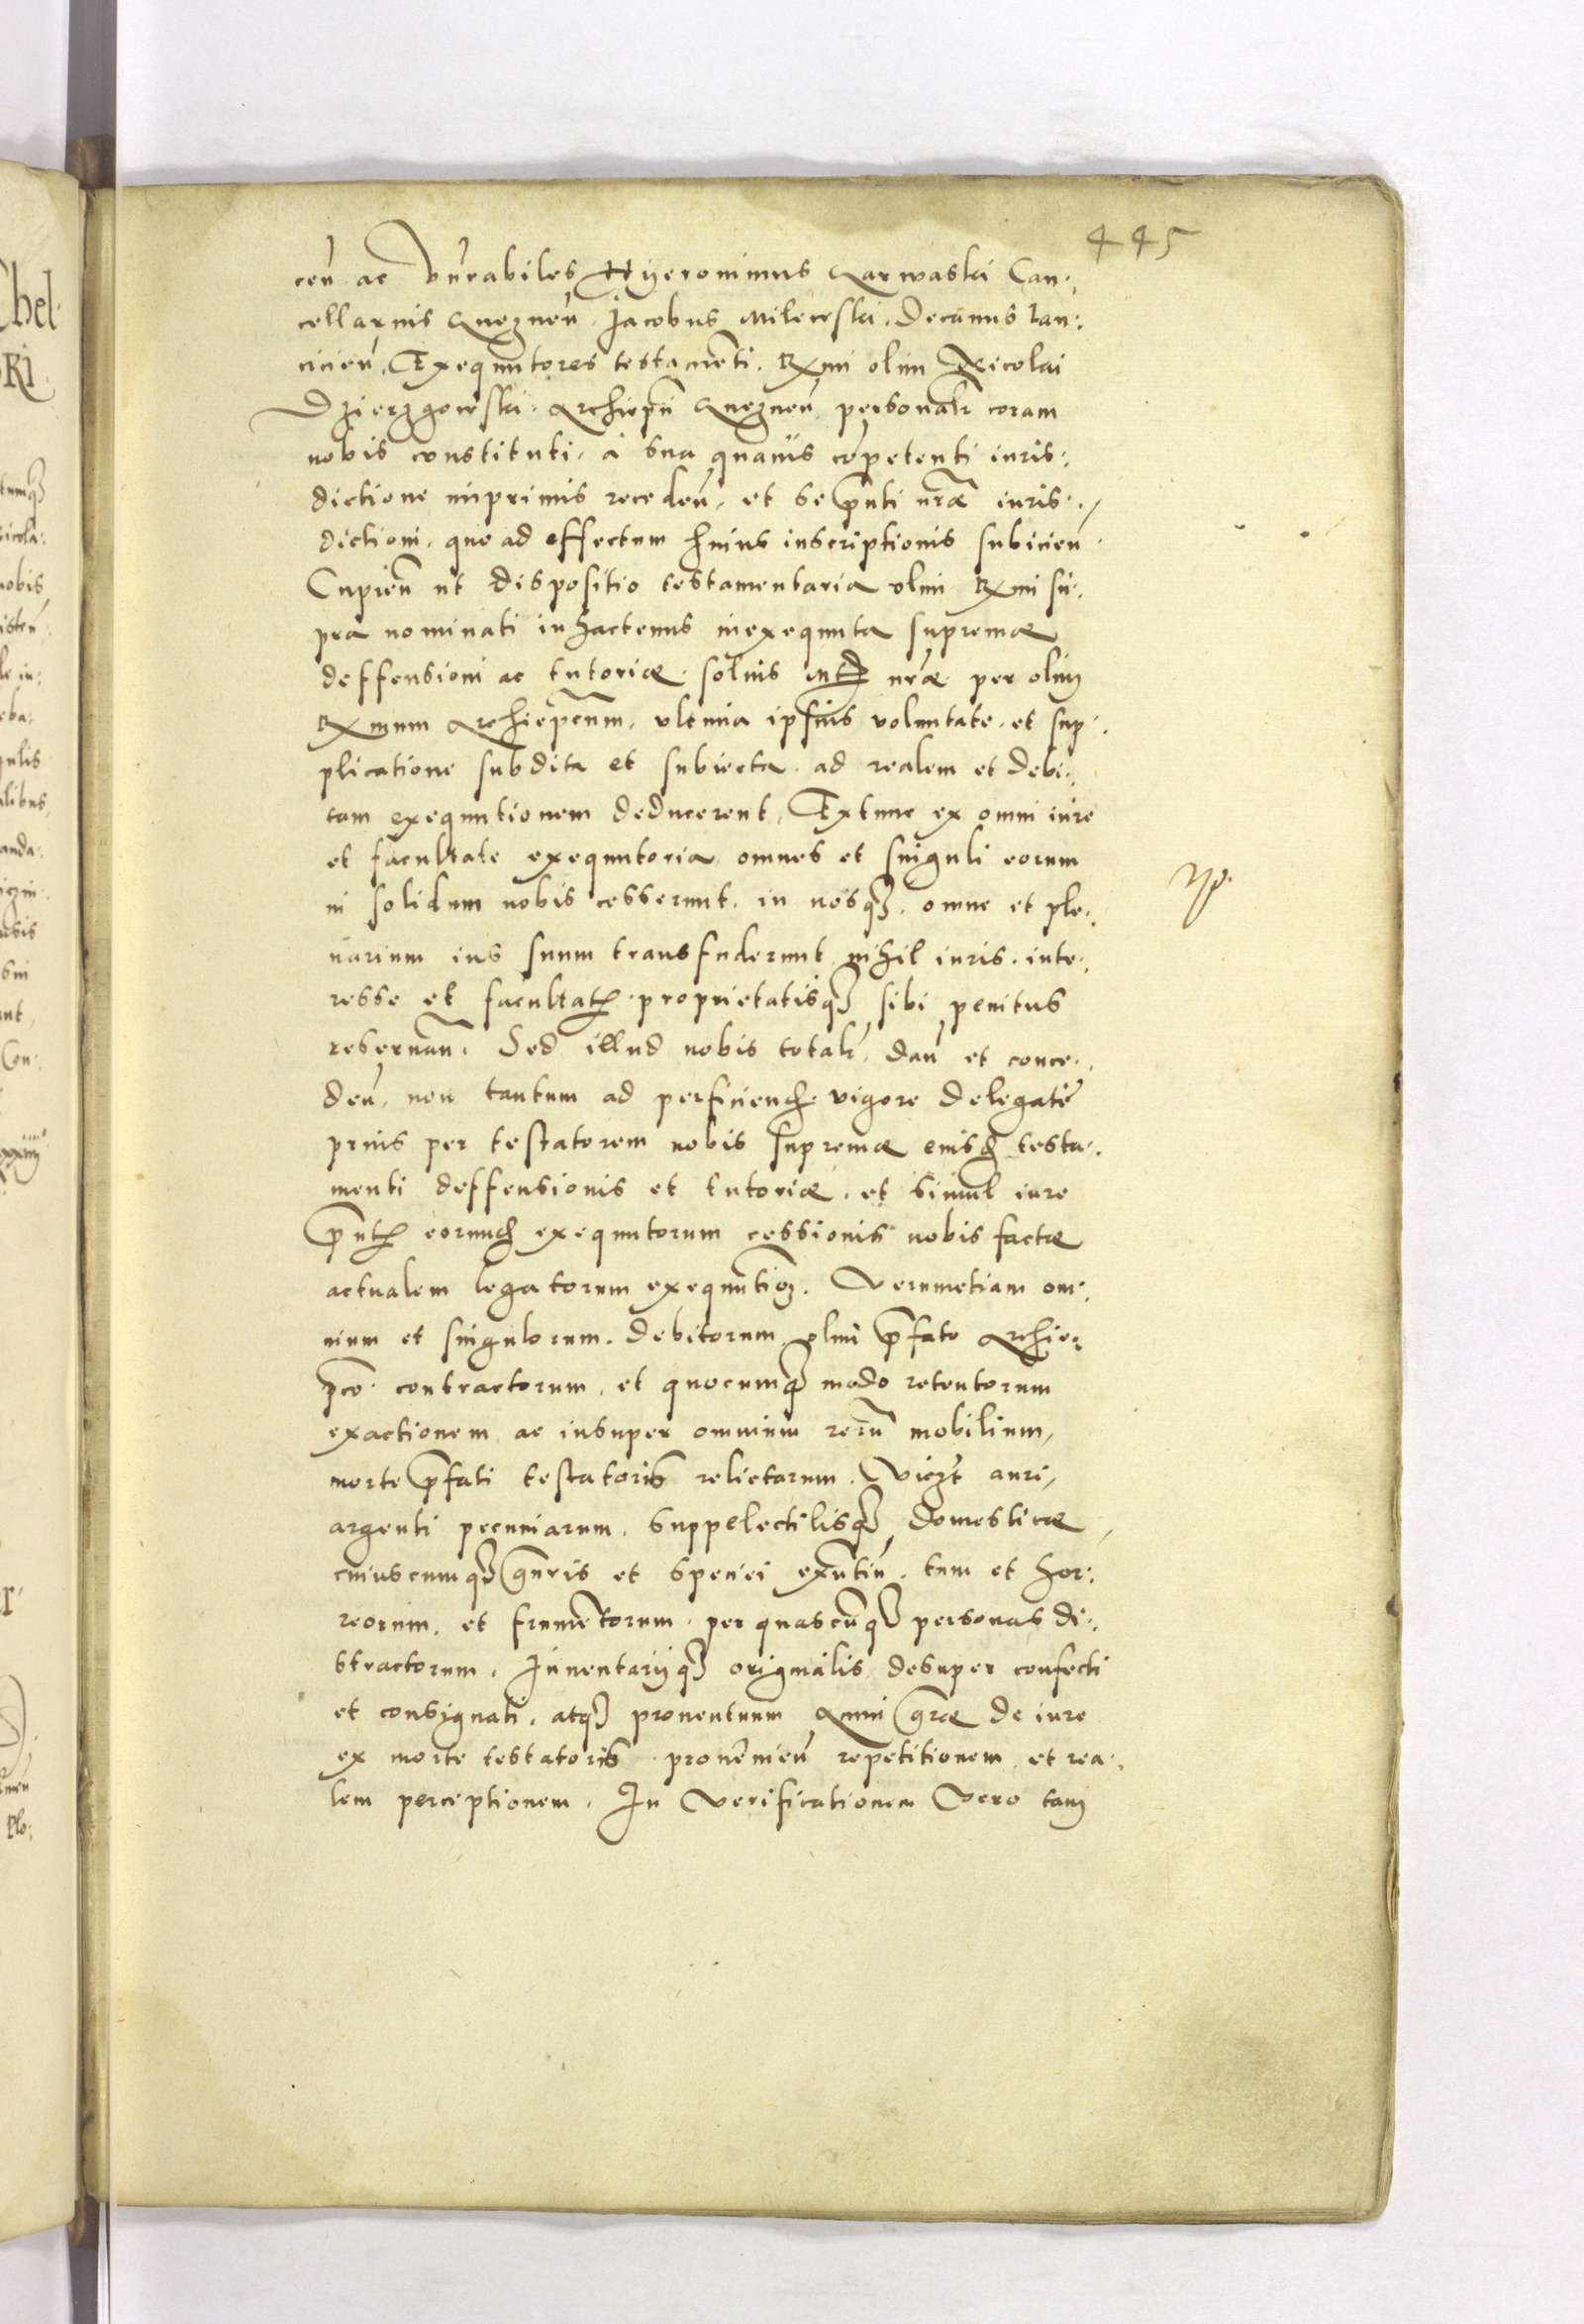 445
ceń ac vńrabiles Hyeronimus Garwaski Can:
cellarius Gnezneń. Jacobus Milewski. Decanus Lan:
cicień. Exequutores testamēti. Rxmi olim Nicolai
Dzierzgowski. Archiepī Gnezneń personalr coram
nobis constituti. à sua quāuis cōpetenti iuris:
dictione inprimis recedeń. et se pñti nrāe iuris:
dictioni. quo ad effectum huius inscriptionis subicień.
Cupień ut dispositio testamentaria olim Rxmi su:
pra nominati inhactenus inexequuta supremae
deffensioni ac tutoriae. solius Mtis nrāe per olim
Rxmum Archiepcum. ultima ipsius voluntate. et sup:
plicatione subdita et subiecta. ad realem et debi:
tam exequutionem deducerent. Extunc ex omni iure
et facultate exequutoria omnes et singuli eorum
in solidum nobis cesserunt. in nosq3. omne et ple:
narium ius suum transfuderunt nihil iuris. inte:
resse et facultatis proprietatisq3 sibi penitus
reseruań. Sed illud nobis totalr. dań et conce:
deń. non tantum ad perficiend. vigore delegatē
prius per testatorem nobis supremae eiusd testa:
menti deffensionis et tutoriae. et simul iure
pñtis eorund exequutorum cessionis nobis factae
actualem legatorum exequutiōz. Verumetiam om:
nium et singulorum. debitorum olim pfato Archie:
pco. contractorum. et quocumq3 modo retentorum
exactionem ac insuper omnium rerū mobilium,
morte pfati testatoris relictarum. Viczt auri,
argenti pecuniarum. suppelectilisq3 domesticae,
cuiuscumq3 gńris et speciei exñtiū. tum et hor:
reorum. et frumētorum. per quascūq3 personas di:
stractorum. Inuentarijq3 originalis desuper confecti
et consignati. atq3 prouentuum Anni grae de iure
ex morte testatoris. prouēnień repetitionem et rea:
lem perceptionem. In Verificationem Vero tam